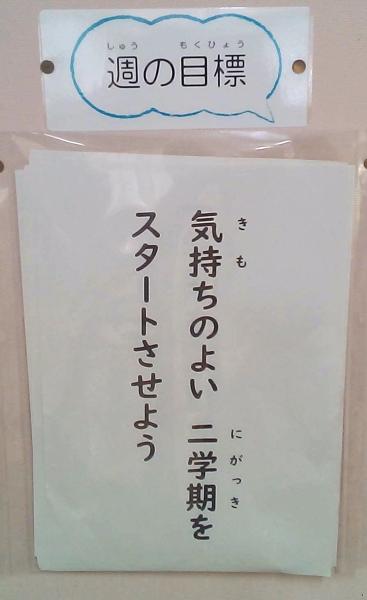 しゅう もくひょう
週の目標
きも にがっき
気持ちのよい 二学期を
スタートさせよう